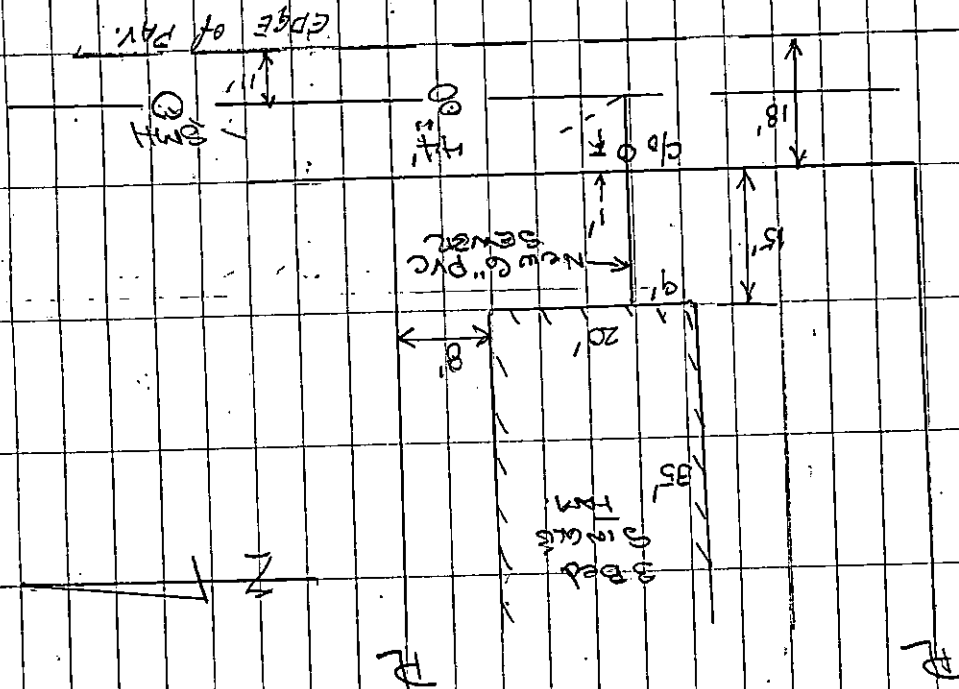 PL
PL
N
3 Bed
SINGLE
FAM
35'
20'
8'
6'
15'
New 6" PVC
SEWER
1'
C/O
18'
SMH
11'
EDGE of PAV.